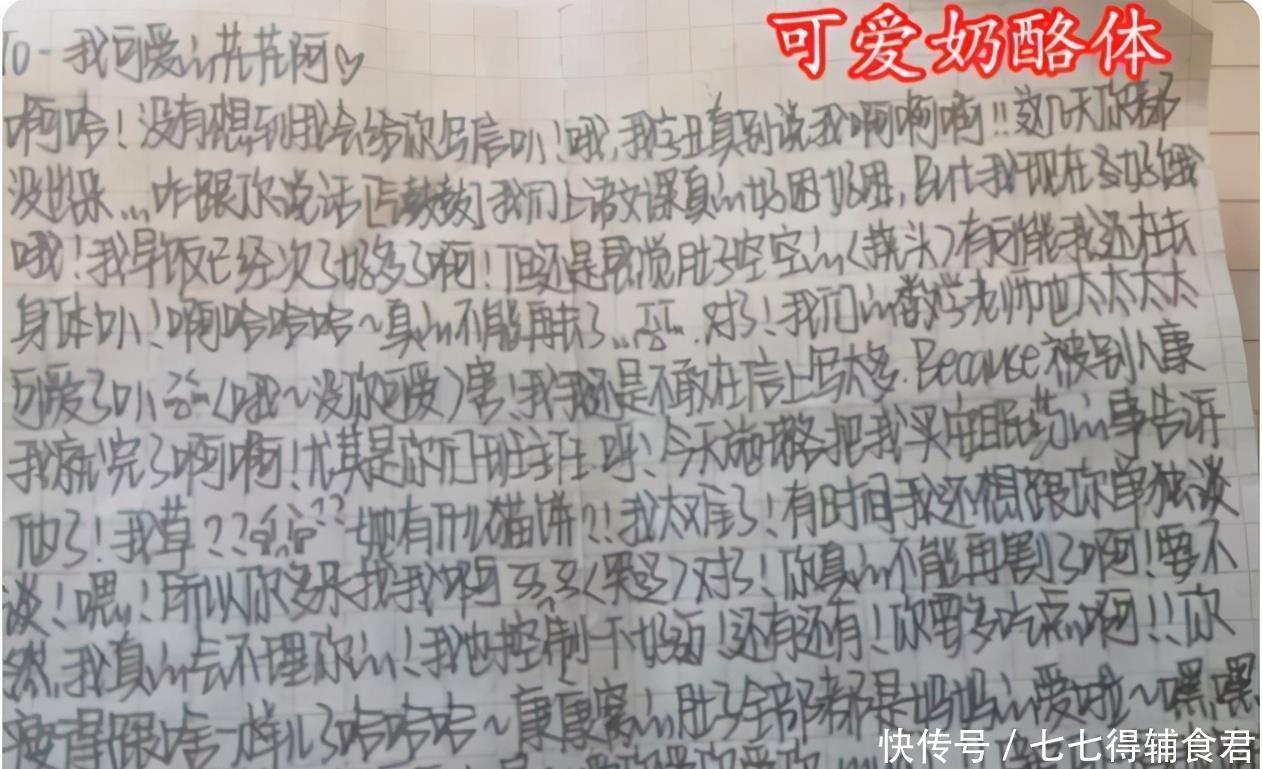 可爱奶酪体
To - 我可爱in芃芃阿♡
啊哈！没有想到我会给你写信叭！哦,我字丑真别说我啊啊啊!!这几天你都
没出来...咋跟你说话[气鼓鼓]我们上语文课真in好困好困,But我现在
哦！我早饭已经次了好多了啊！但还是感觉肚子空空in(挠头)有可能我还在长
身体叭！啊哈哈哈~真in不能再长了...对了！我们in老师也太太太太
可爱了叭(哦~没你可爱)害！我还是不敢在信上写太多.Because被别人康
我就完了啊啊！尤其是你们班主任.呼！今天把我买安眠药in事告诉
他了！我草??她有开心猫饼?!我太难了！有时间我还想跟你单独谈
谈！嗯！所以你多来找我啊(哭泣)对了！你真in不能再割了啊！要不
然,我真in会不理你in！我也控制一下好泪！还有还有！你要多吃点啊!!你
瘦得跟啥一样儿了哈哈哈~康康窝in肚子全部都是妈妈in爱啦~嘿,嘿
快传号 / 七七得辅食君